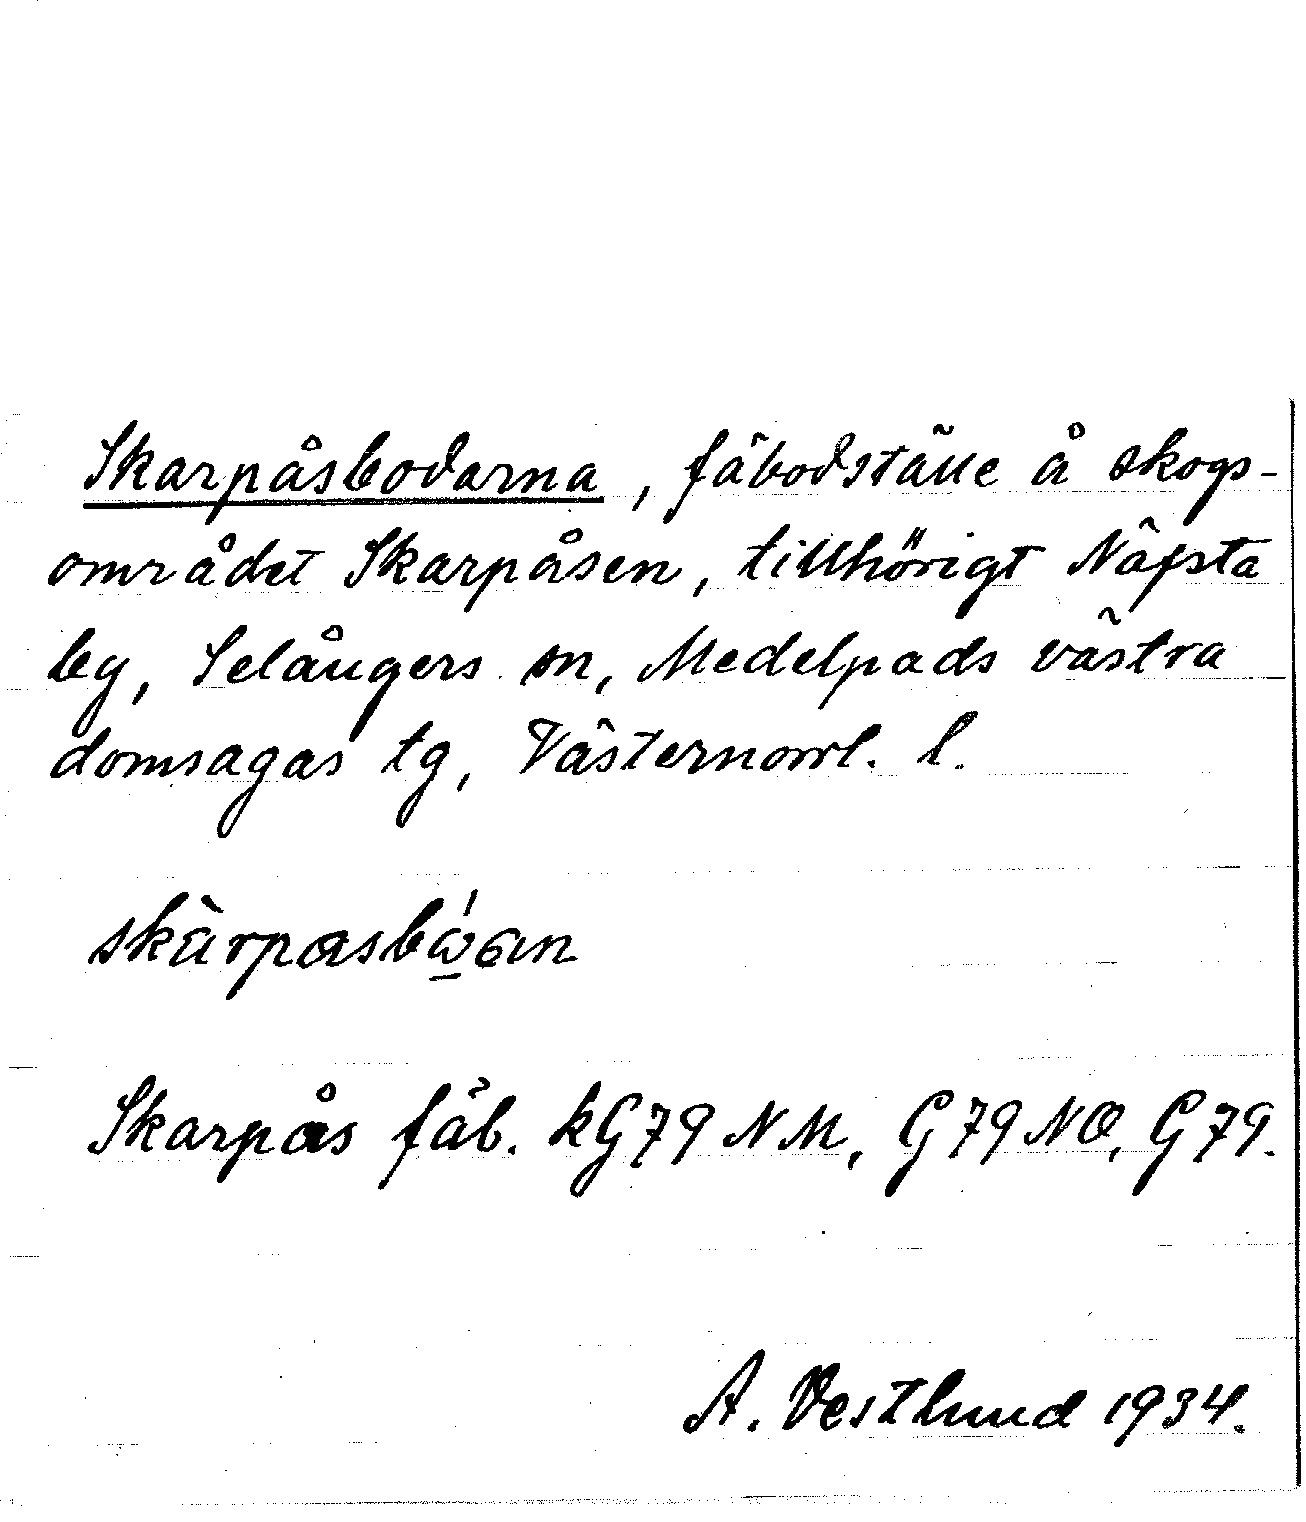 Skarpåsbodarna, fäbodställe å skogs-
området Skarpåsen, tillhörigt Näfsta
by, Selångers sn, Medelpads västra
domsagas tg, Västernorrl. l.
skàrpasbώ̲an
Skarpås fäb. kG79NM, G79NO, G79.
A. Vestlund 1934.